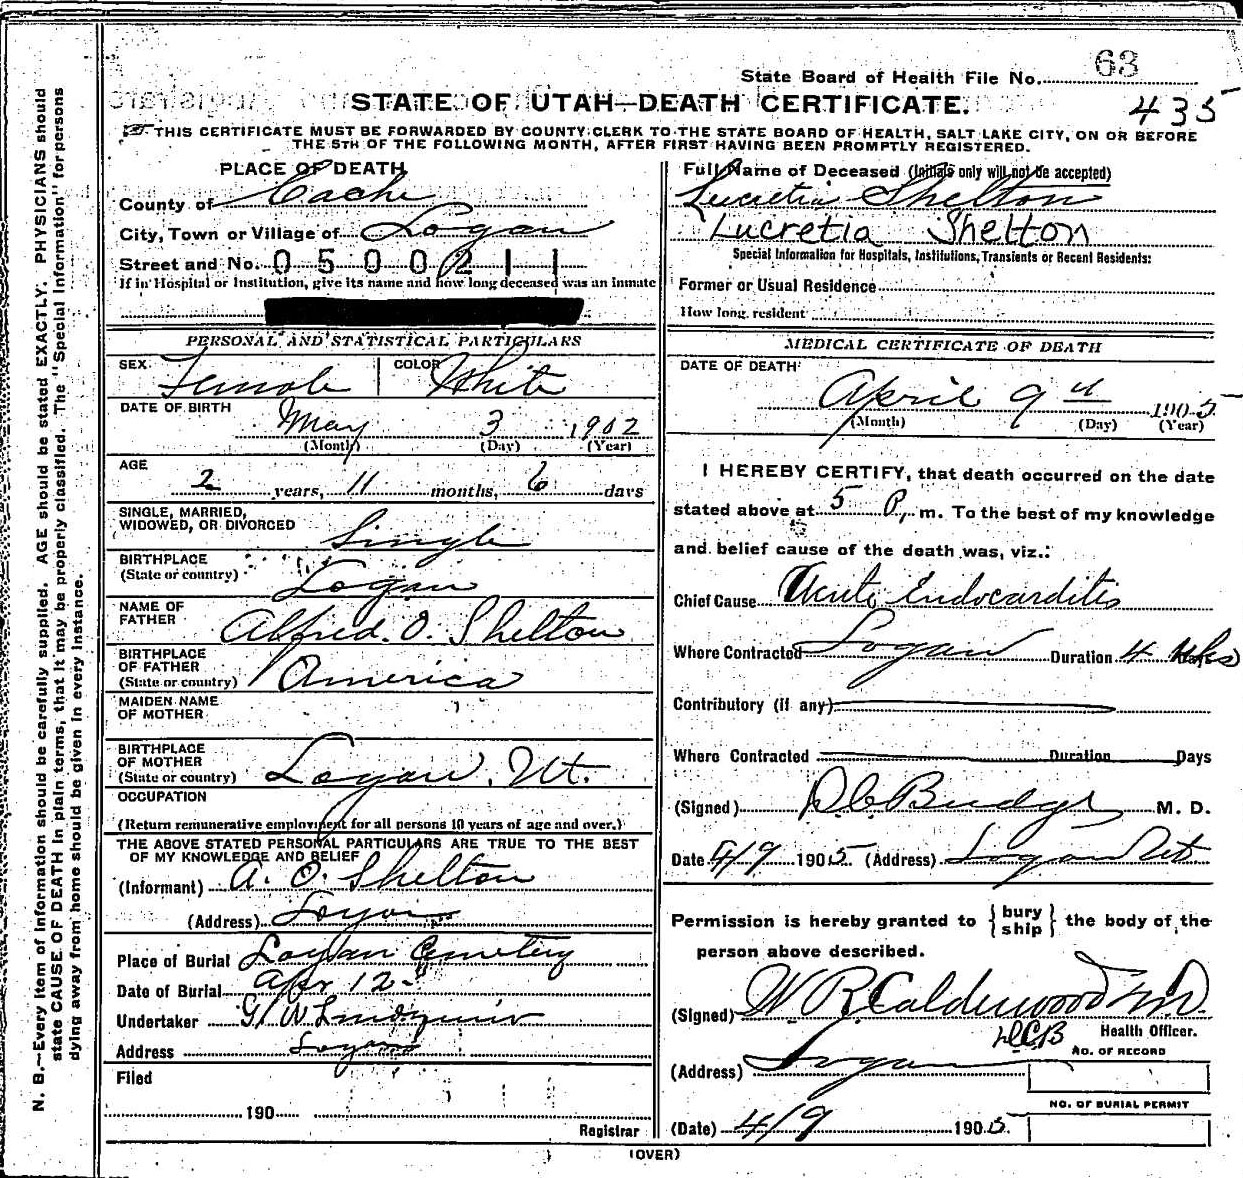 State Board of Health File No. 63
STATE OF UTAH—DEATH CERTIFICATE.
435
THIS CERTIFICATE MUST BE FORWARDED BY COUNTY CLERK TO THE STATE BOARD OF HEALTH, SALT LAKE CITY, ON OR BEFORE
THE 5TH OF THE FOLLOWING MONTH, AFTER FIRST HAVING BEEN PROMPTLY REGISTERED.
N. B.—Every item of information should be carefully supplied. AGE should be stated EXACTLY. PHYSICIANS should
state CAUSE OF DEATH in plain terms, that it may be properly classified. The "Special Information" for persons
dying away from home should be given in every instance.
PLACE OF DEATH
County of Cache
City, Town or Village of Logan
Street and No. 0500211
If in Hospital or Institution, give its name and how long deceased was an inmate
PERSONAL AND STATISTICAL PARTICULARS
SEX Female COLOR White
DATE OF BIRTH
May 3 1902
(Month) (Day) (Year)
AGE
2 years, 11 months, 6 days
SINGLE, MARRIED,
WIDOWED, OR DIVORCED Single
BIRTHPLACE
(State or country) Logan
NAME OF
FATHER Alfred. O. Shelton
BIRTHPLACE
OF FATHER
(State or country) America
MAIDEN NAME
OF MOTHER
BIRTHPLACE
OF MOTHER
(State or country) Logan, Ut.
OCCUPATION
(Return remunerative employment for all persons 10 years of age and over.)
THE ABOVE STATED PERSONAL PARTICULARS ARE TRUE TO THE BEST
OF MY KNOWLEDGE AND BELIEF
(Informant) A. O. Shelton
(Address) Logan
Place of Burial Logan Cemetery
Date of Burial Apr 12
Undertaker G W Lindquist
Address Logan
Filed
190
Registrar
Full Name of Deceased (Initials only will not be accepted)
Lucretia Shelton
Lucretia Shelton
Special Information for Hospitals, Institutions, Transients or Recent Residents:
Former or Usual Residence
How long resident
MEDICAL CERTIFICATE OF DEATH
DATE OF DEATH
April 9th 1905
(Month) (Day) (Year)
I HEREBY CERTIFY, that death occurred on the date
stated above at 5 P. m. To the best of my knowledge
and belief cause of the death was, viz.:
Chief Cause Acute Endocarditis
Where Contracted Logan Duration 4
Contributory (if any)
Where Contracted Duration Days
(Signed) D C Budge M. D.
Date 4/9 1905. (Address) Logan Ut
Permission is hereby granted to {bury ship} the body of the
person above described.
(Signed) W R Calderwood M.D.
DCB Health Officer.
NO. OF RECORD
(Address) Logan
NO. OF BURIAL PERMIT
(Date) 4/9 1905
(OVER)